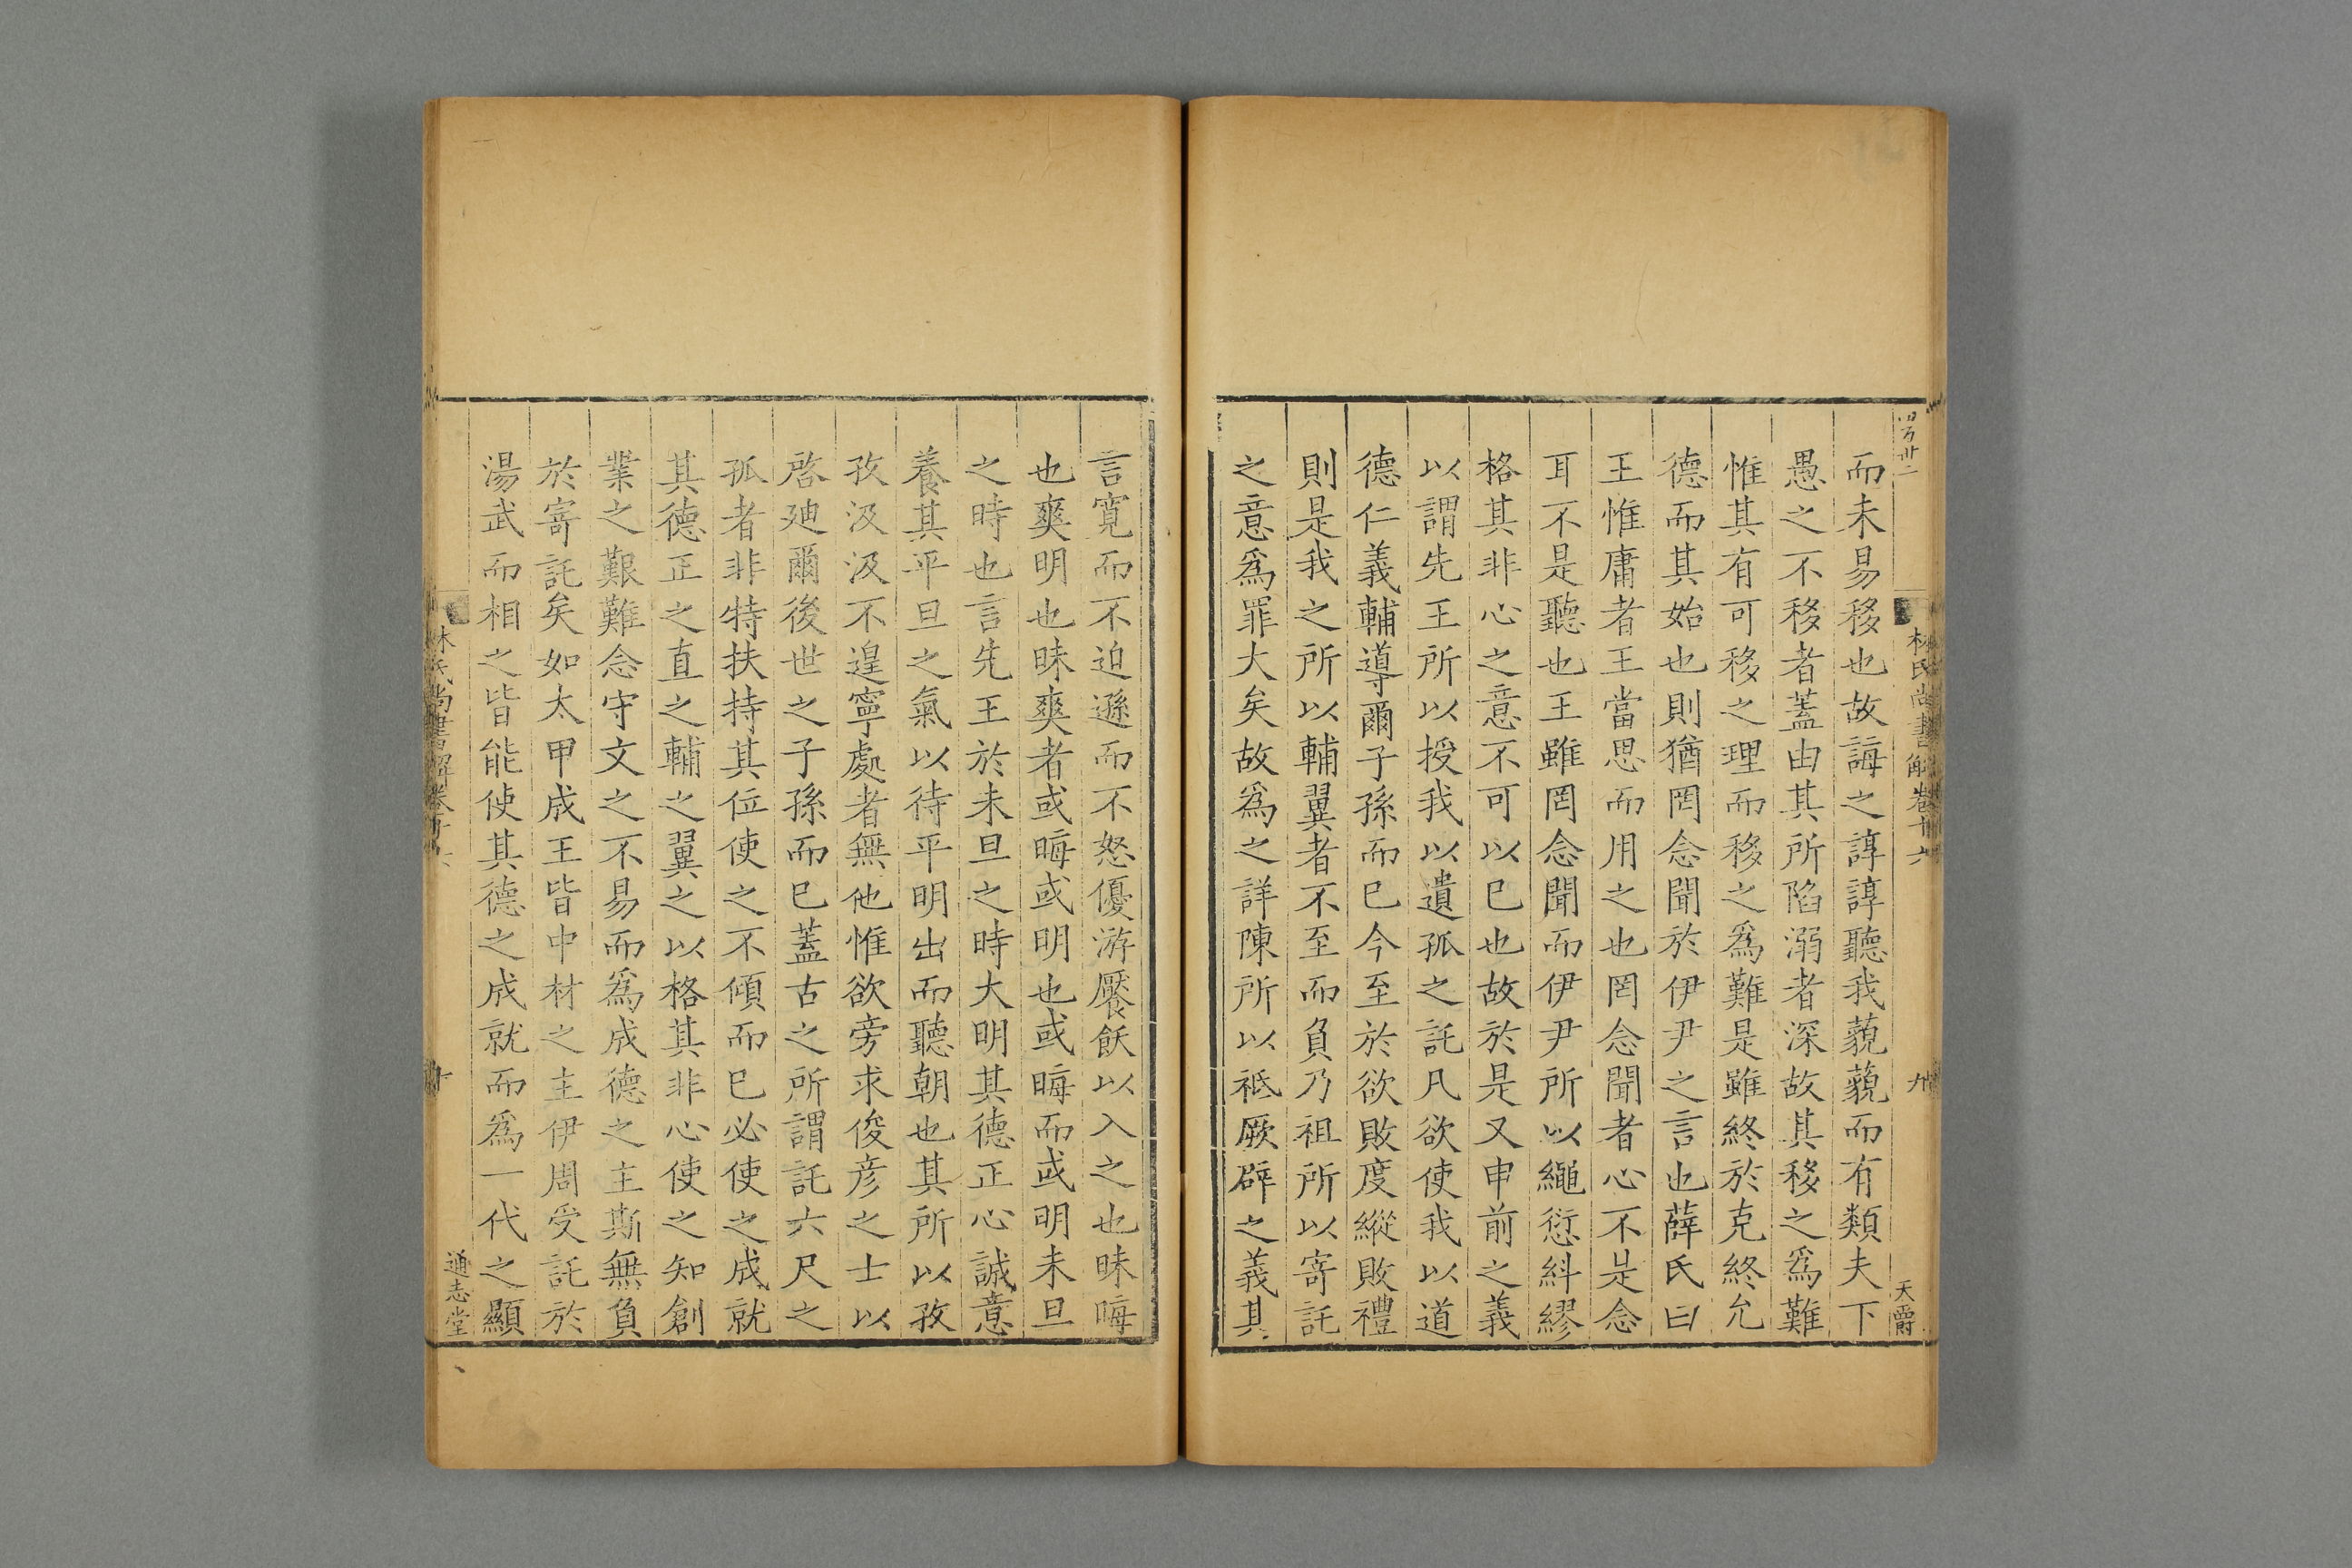 四百卅二
林氏尚書解卷十六
九
天爵
而未易移也故誨之諄諄聽我藐藐而有類夫下
愚之不移者蓋由其所陷溺者深故其移之爲難
惟其有可移之理而移之爲難是雖終於克終允
德而其始也則猶罔念聞於伊尹之言也薛氏曰
王惟庸者王當思而用之也罔念聞者心不是念
耳不是聽也王雖罔念聞而伊尹所以繩愆糾繆
格其非心之意不可以已也故於是又申前之義
以謂先王所以授我以遺孤之託凡欲使我以道
德仁義輔導爾子孫而已今至於欲敗度縱敗禮
則是我之所以輔翼者不至而負乃祖所以寄託
之意爲罪大矣故爲之詳陳所以祗厥辟之義其
言寛而不迫遜而不怒優游饜飫以入之也昧晦
也爽明也昧爽者或晦或明也或晦而或明未旦
之時也言先王於未旦之時大明其德正心誠意
養其平旦之氣以待平明出而聽朝也其所以孜
孜汲汲不遑寧處者無他惟欲旁求俊彦之士以
啓廸爾後世之子孫而已蓋古之所謂託六尺之
孤者非特扶持其位使之不傾而已必使之成就
其德正之直之輔之翼之以格其非心使之知創
業之艱難念守文之不易而爲成德之主斯無負
於寄託矣如太甲成王皆中材之主伊周受託於
湯武而相之皆能使其德之成就而爲一代之顯
林氏尚書解卷十六
十
通志堂